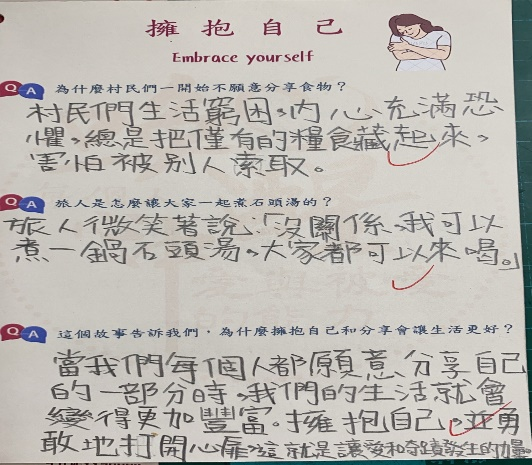 擁抱自己
Embrace yourself
Q A 為什麼村民們一開始不願意分享食物？
村民們生活窮困，內心充滿恐
懼，總是把僅有的糧食藏起來，
害怕被別人索取。
Q A 旅人是怎麼讓大家一起煮石頭湯的？
旅人微笑著說：「沒關係，我可以
煮一鍋石頭湯，大家都可以來喝。」
Q A 這個故事告訴我們，為什麼擁抱自己和分享會讓生活更好？
當我們每個人都願意分享自己
的一部分時，我們的生活就會
變得更加豐富。擁抱自己，並勇
敢地打開心扉，這就是讓愛和奇蹟發生的力量